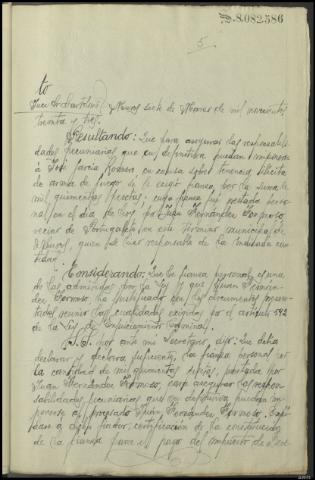 S.8.082.586
5
to
Juez Sr. Bartolomé / Nueve siete de Marzo de mil novecientos
treinta y tres.
Resultando: Que para asegurar las responsabili
dades pecuniarias que en definitiva puedan imponerse
á José García Romero, en causa sobre tenencia ilícita
de arma de fuego se le exigió fianza por la suma de
mil quinientas pesetas; cuya fianza fué prestada perso
nal en el día de hoy por Juan Fernández Formoso,
vecino de en este término municipal de
quien se hace responsable de la indicada can
tidad.
Considerando: Que la fianza personal es una
de las admitidas por la Ley y que Juan Fernán
dez Formoso, ha justificado con los documentos presen
tados reunir las cualidades exigidas por el artículo 592
de la Ley de Enjuiciamiento Criminal.
S.S. por ante mí Secretario, dijo: Que debía
declarar y declara suficiente, la fianza personal por
la cantidad de mil quinientas pesetas, prestada por
Juan Fernández Formoso, para asegurar las respon
sabilidades pecuniarias que en definitiva puedan im
ponerse al procesado Juan Fernández Formoso.
á dicho fiador, certificación de la constitución
de la fianza para el pago del impuesto de